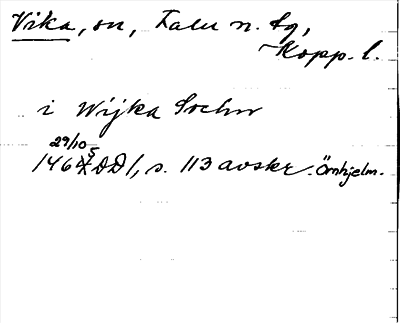 Vika, sn, Falu n. tg,
Kopp. l.
i Wijka Sochn
29/10
5
1464 DD 1, s. 113 avskr. Örnhjelm.